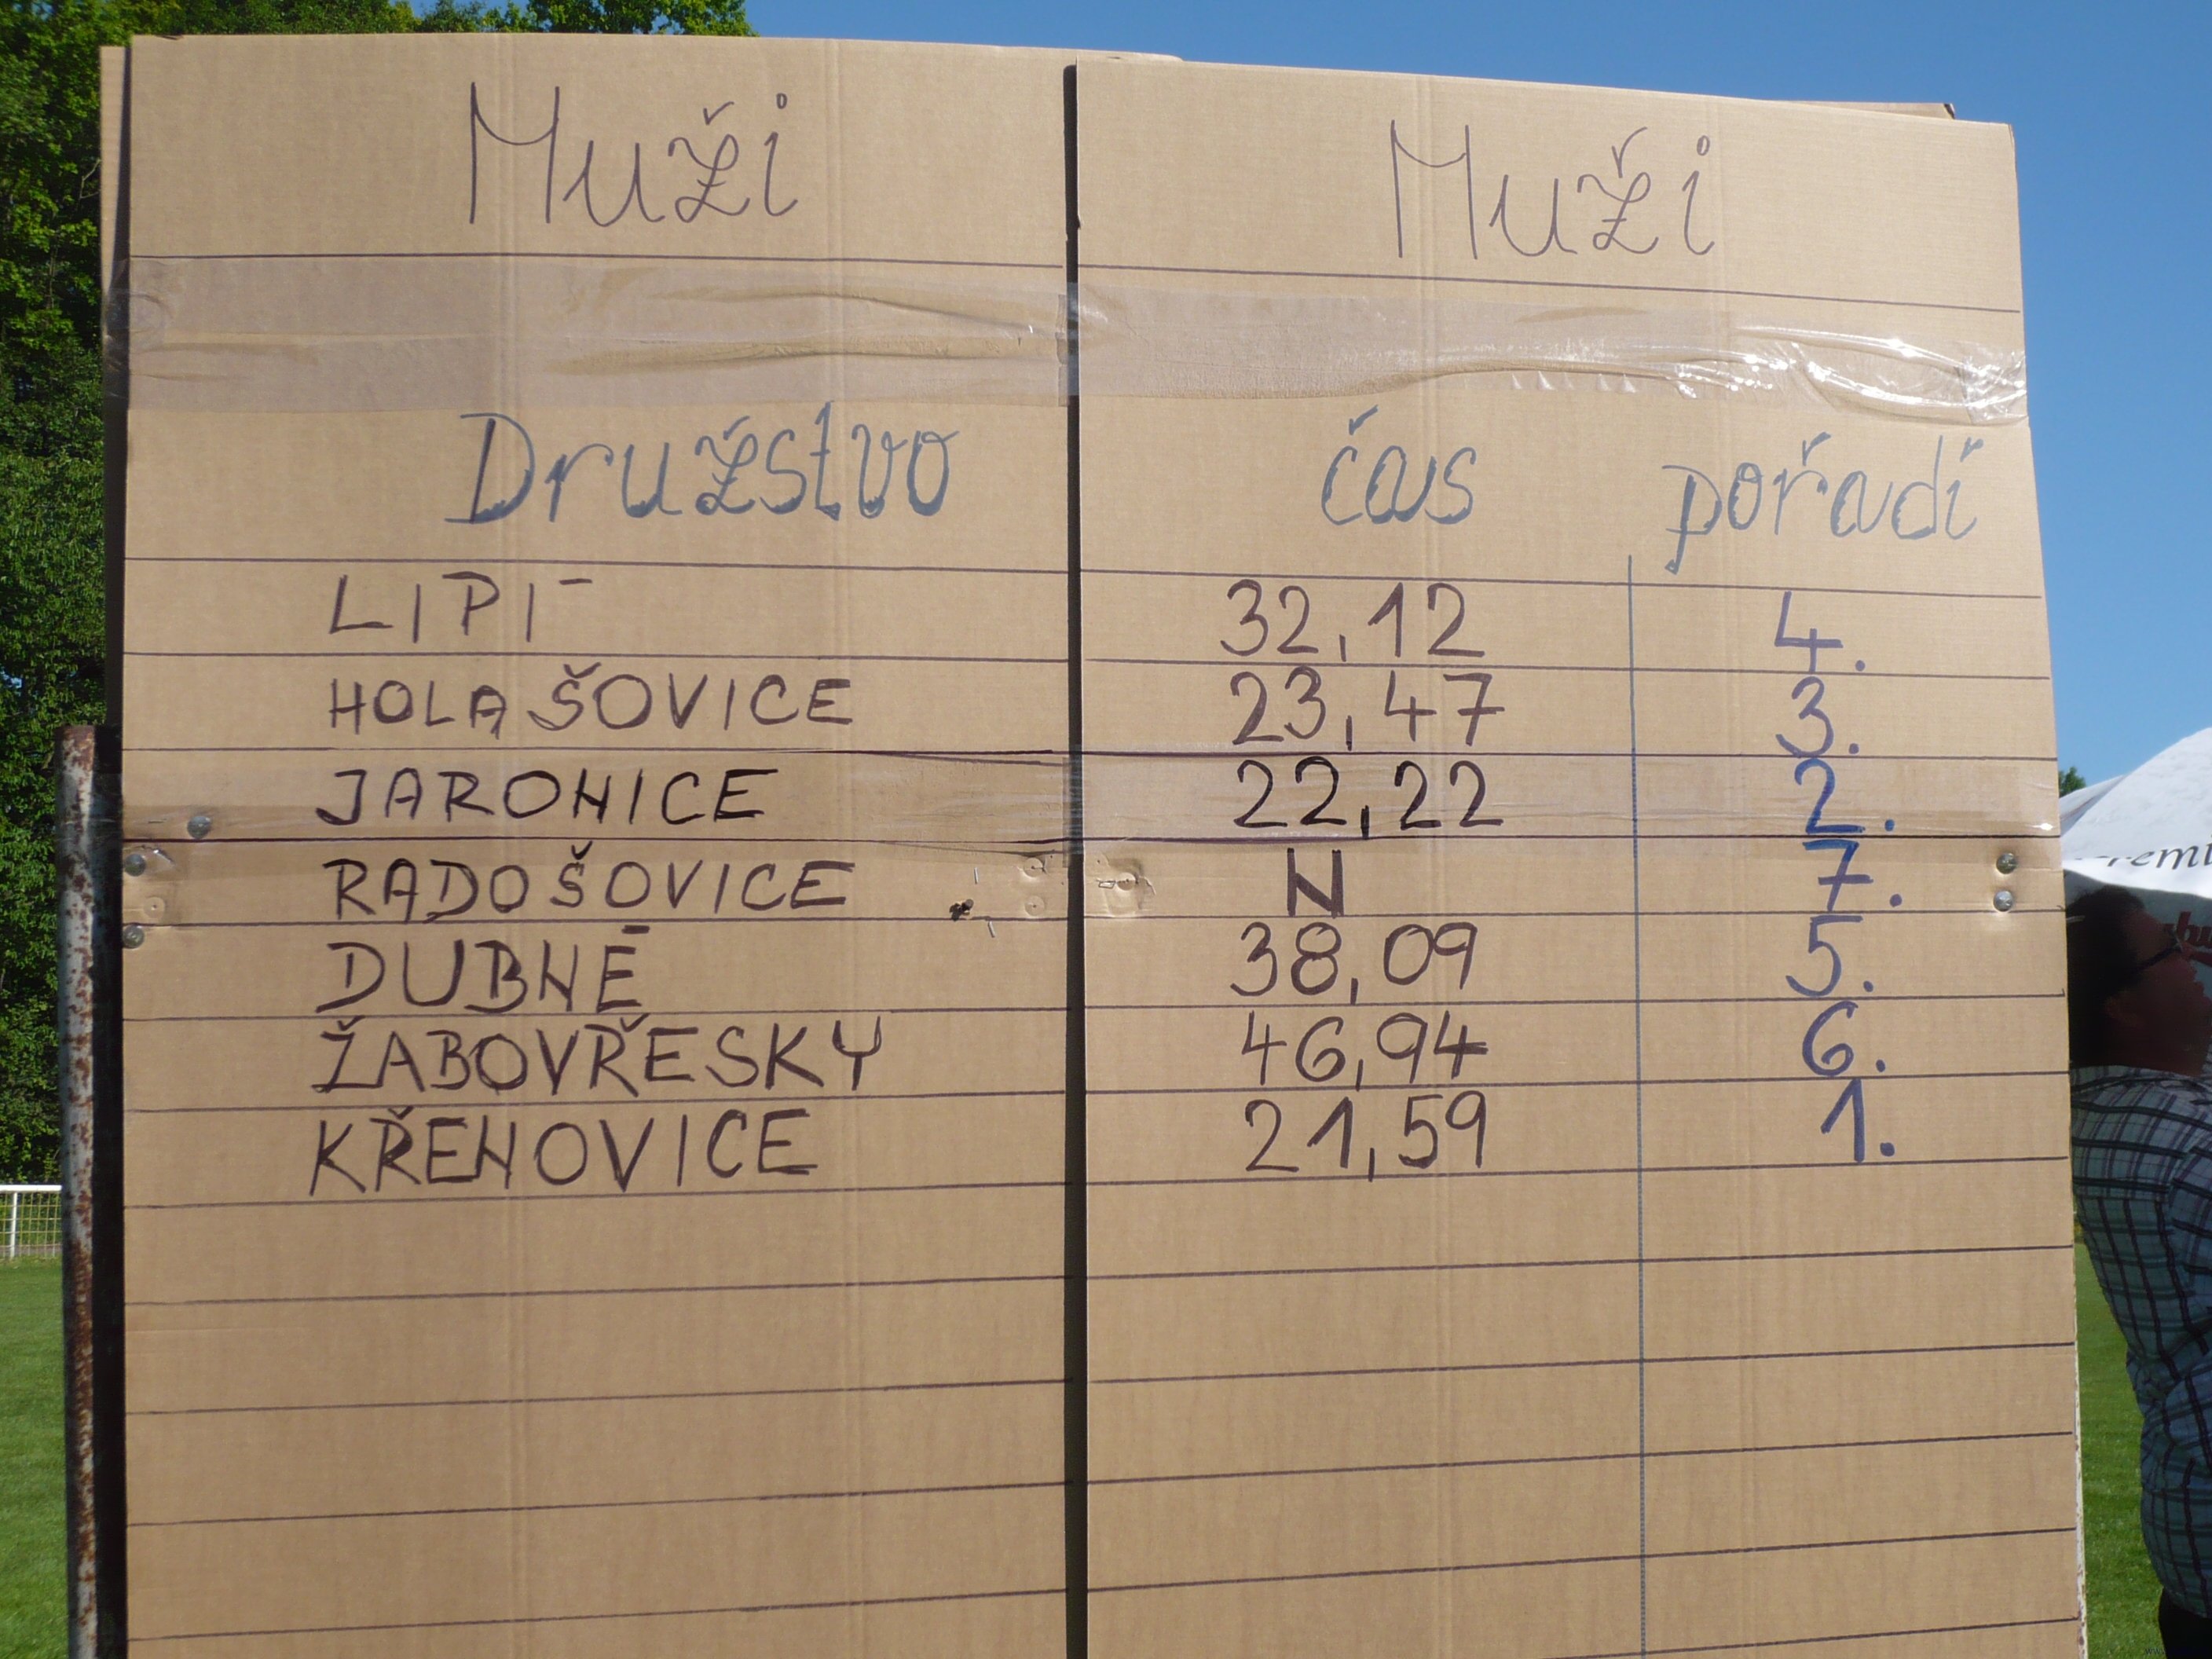 Muži Muži
Družstvo čas pořadí
LIPÍ 32,12 4.
HOLAŠOVICE 23,47 3.
JARONICE 22,22 2.
RADOŠOVICE N 7.
DUBNÉ 38,09 5.
ŽABOVŘESKY 46,94 6.
KŘENOVICE 21,59 1.